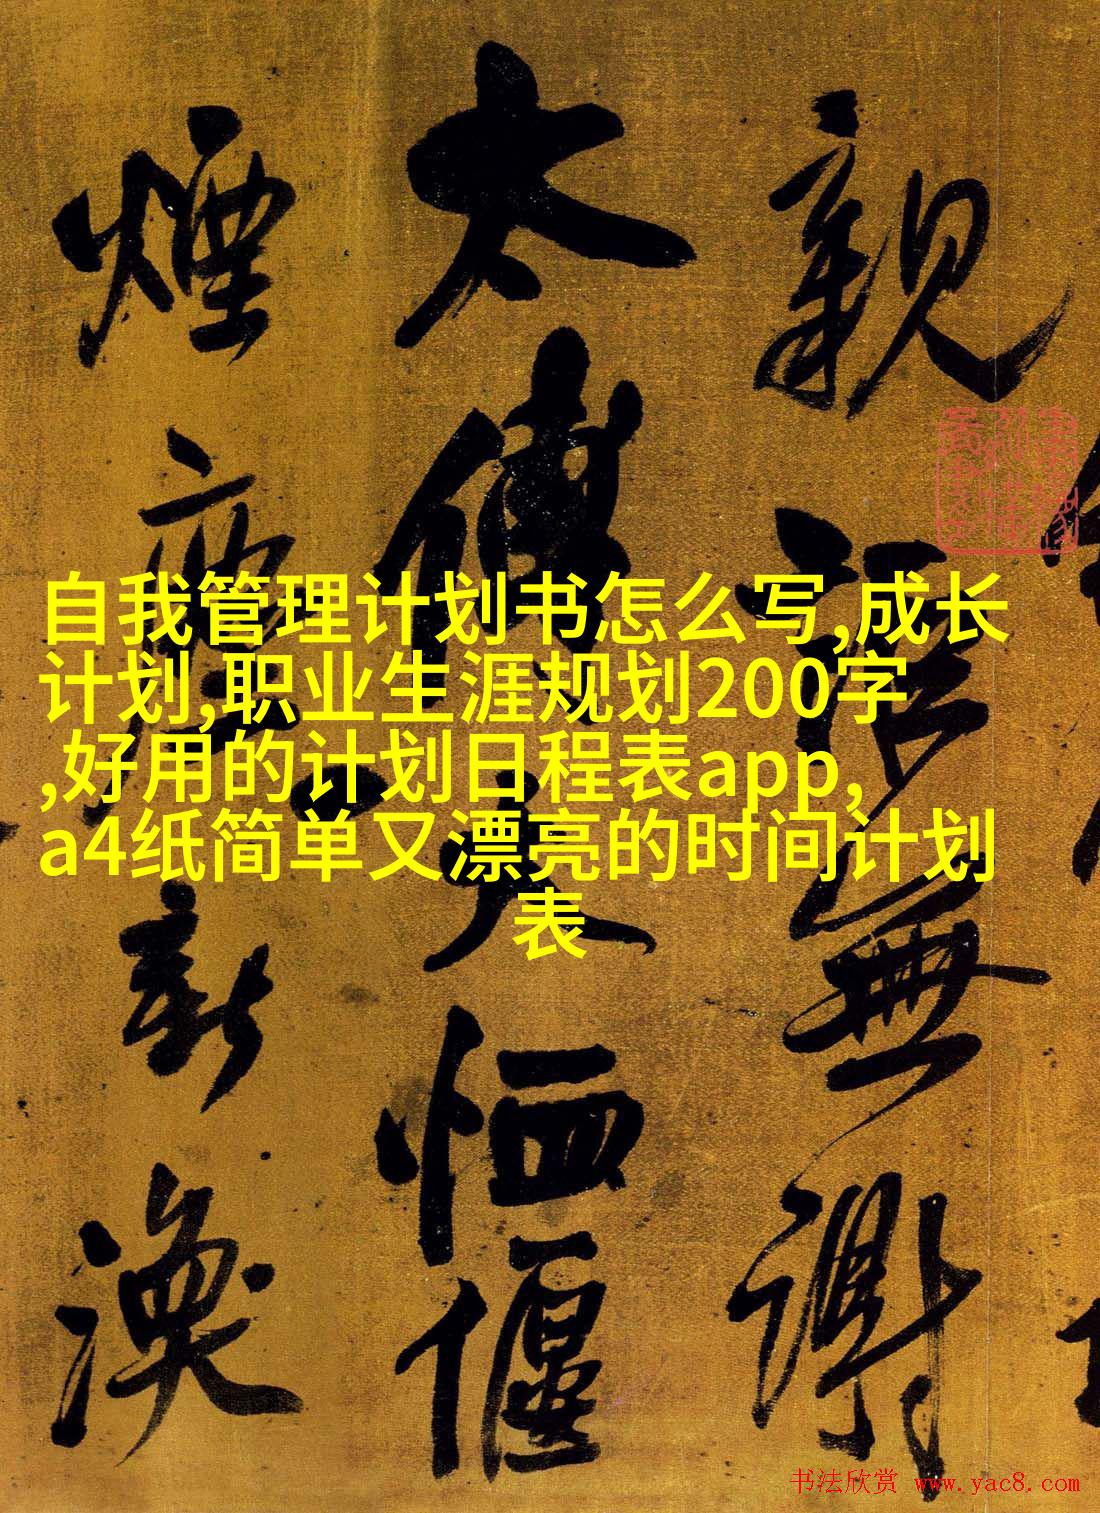 自我管理计划书怎么写,成长
计划,职业生涯规划200字
,好用的计划日程表app,
a4纸简单又漂亮的时间计划
表
親 無謝
太傅 恤偃
煙 新渙
书法欣赏 www.yac8.com